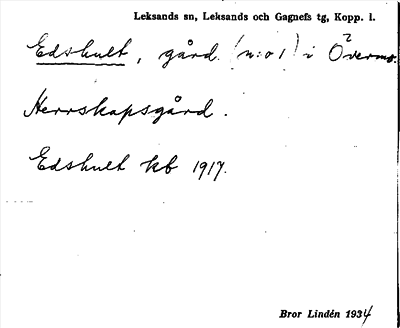 Leksands sn, Leksands och Gagnefs tg, Kopp. l.
Edshult, gård (n:o 1) i Övermo.
2
Herrskapsgård.
Edshult kb 1917.
Bror Lindén 1934